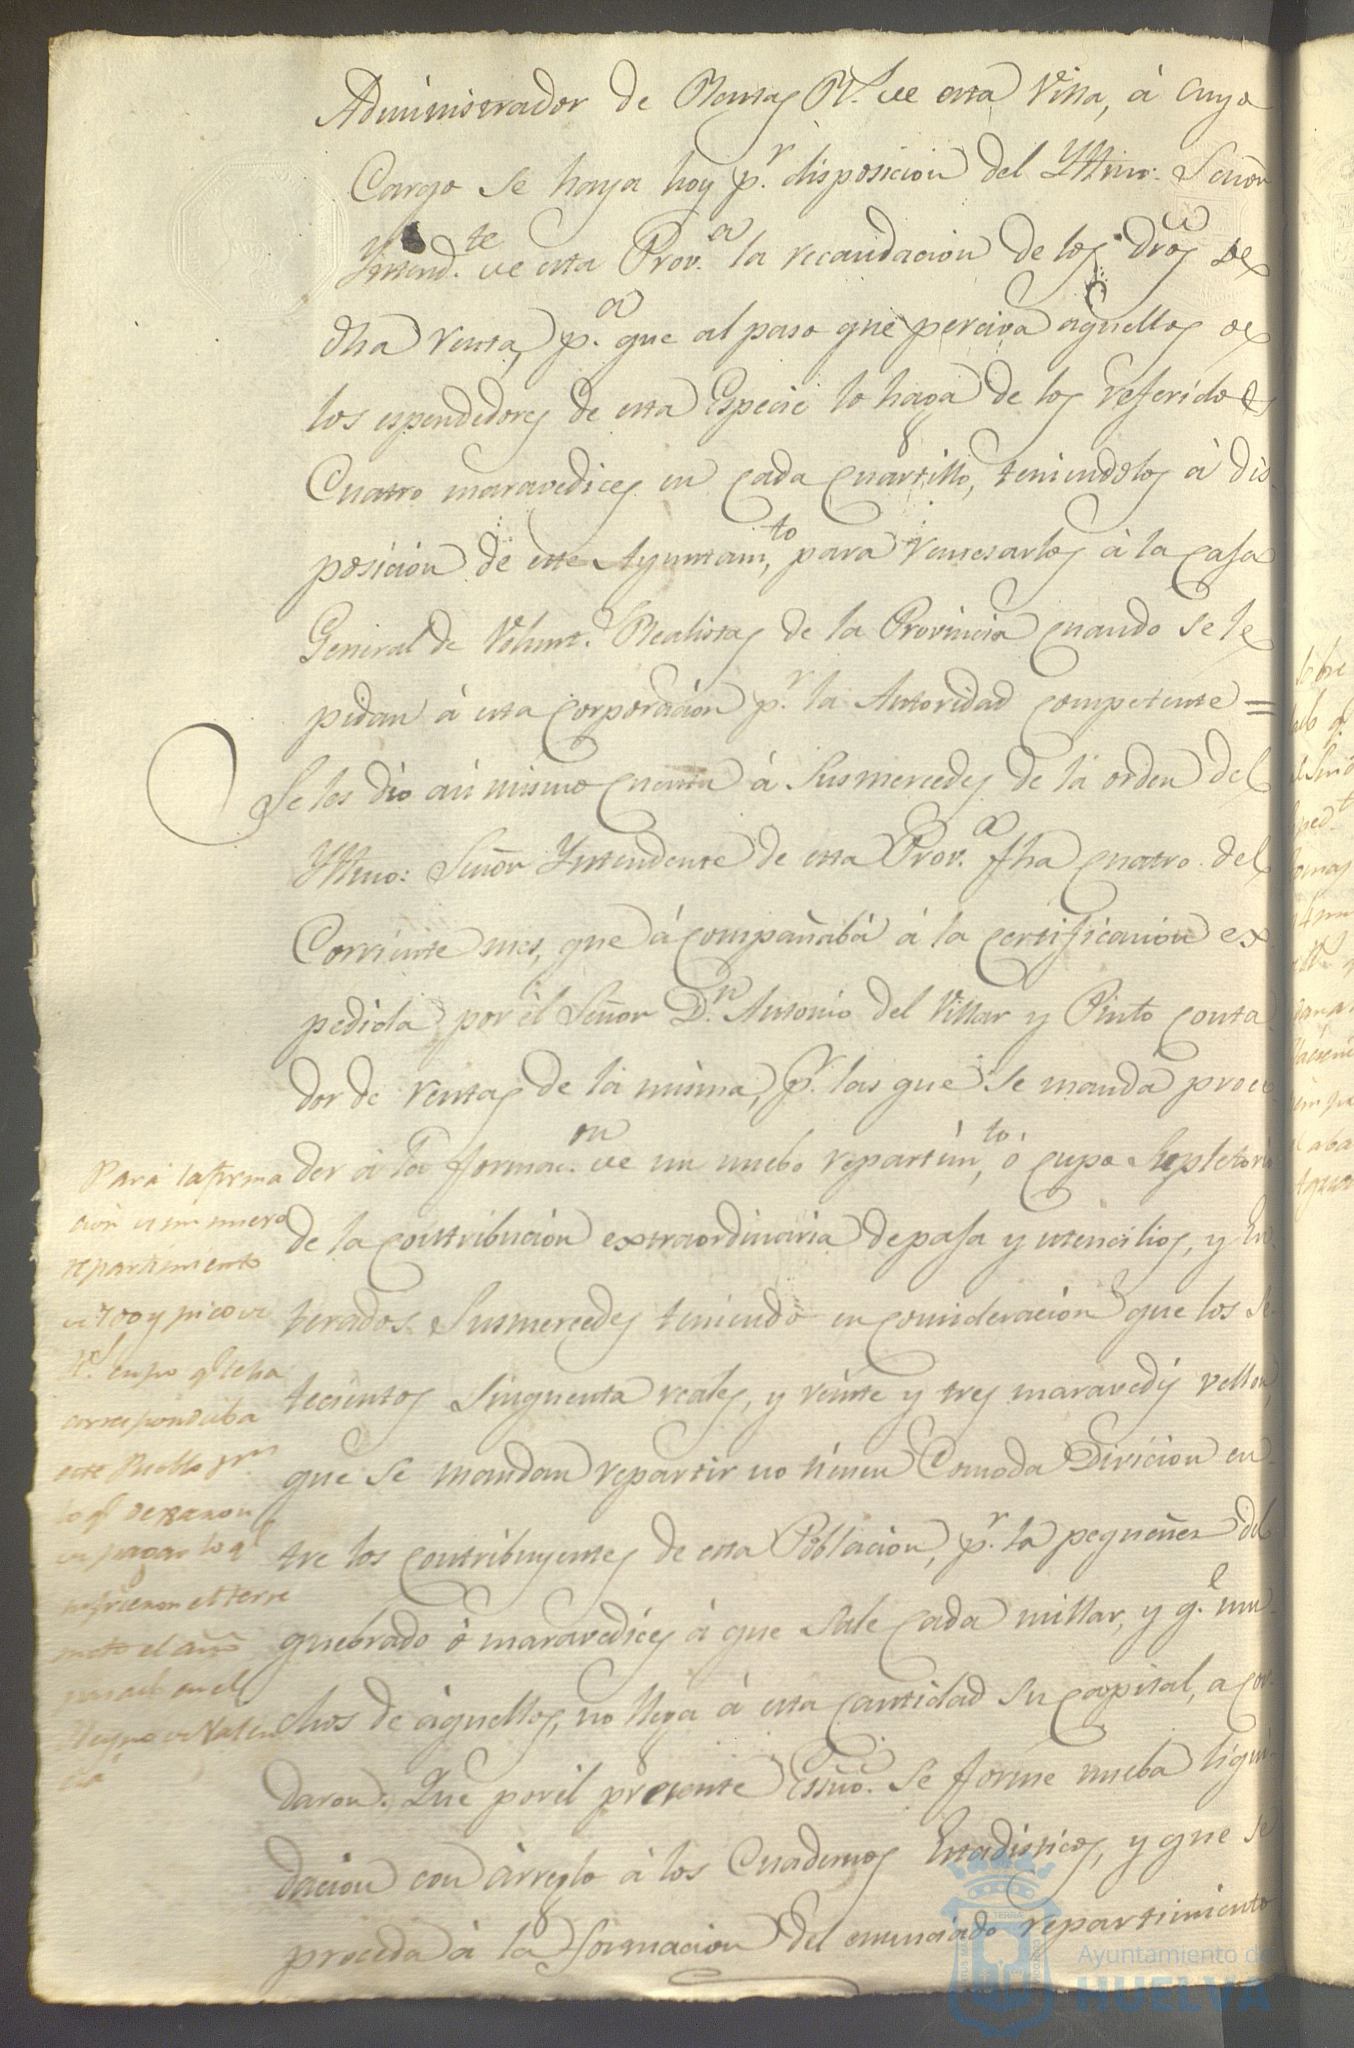 Administrador de Rentas Rs. de esta Villa, á cuyo
Cargo se haya hoy pr. disposicion del Yltmo. Señor
Yntend.te de esta Prov.a la recaudacion de los dros de
dha renta, p.a que al paso que perciva aquellos de
los espendedores de esta Especie lo haga de los referidos
Cuatro maravedices en cada cuartillo, teniendolos á dis-
posición de este Ayuntam.to, para remesarlos á la Casa
General de Volunt.s Realistas de la Provincia cuando se le
pidan á esta corporación pr. la Autoridad competente =
Se les dio asi mismo cuenta á Susmercedes de la orden del
Yltmo: Señor Yntendente de esta Prov.a fha cuatro del
Corriente mes, que ácompañabá á la certificacion ex
pedida por él Señor D.n Antonio del Villar y Pinto conta
dor de rentas de la misma, pr. las que se manda proce
der á la formac.on de un nuebo repartim.to, ó cupo Supletorio
de la contribución extraordinaria de paja y utencilios, y En
terados Susmercedes teniendo en concideración que los se
tecientos Sinquenta reales, y veinte y tres maravedís vellon,
que se mandan repartir no tienen Comoda Divicion en
tre los contribuyentes de esta Poblacion, pr. la pequeñes del
quebrado ó maravedíces á que sale cada millar, y q.e mu
chos de áquellos, no llega á esta cantidad su capital, acor
daron: Que por él presente Essno. se forme nueba liqui
dacion con árreglo á los Cuadernos Estadisticos, y que se
proceda á la formacion del enunciado repartimiento
Para la forma
cion de un nuevo
repartimiento
de 700 y pico de
rs. cupo q.e le ha
correspondido a
este Pueblo pr.
lo q.e dexaron
de pagar lo q.e
sufrieron el terre
moto el año
pasado en el
Reyno de Valen
cia
Ayuntamiento de
HUELVA